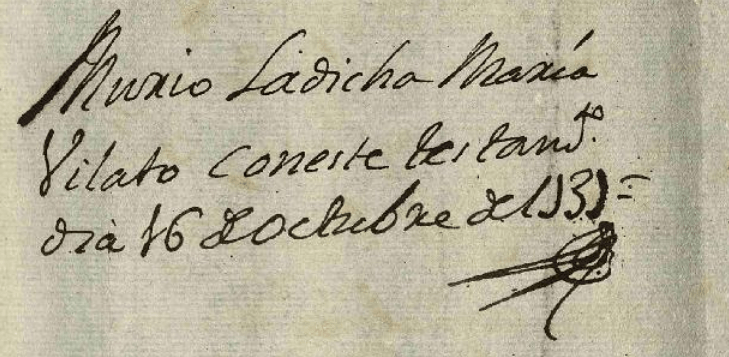 Murio Ladicha María
Vilato coneste testamᵗᵒ.
dia 16 de Octubre de